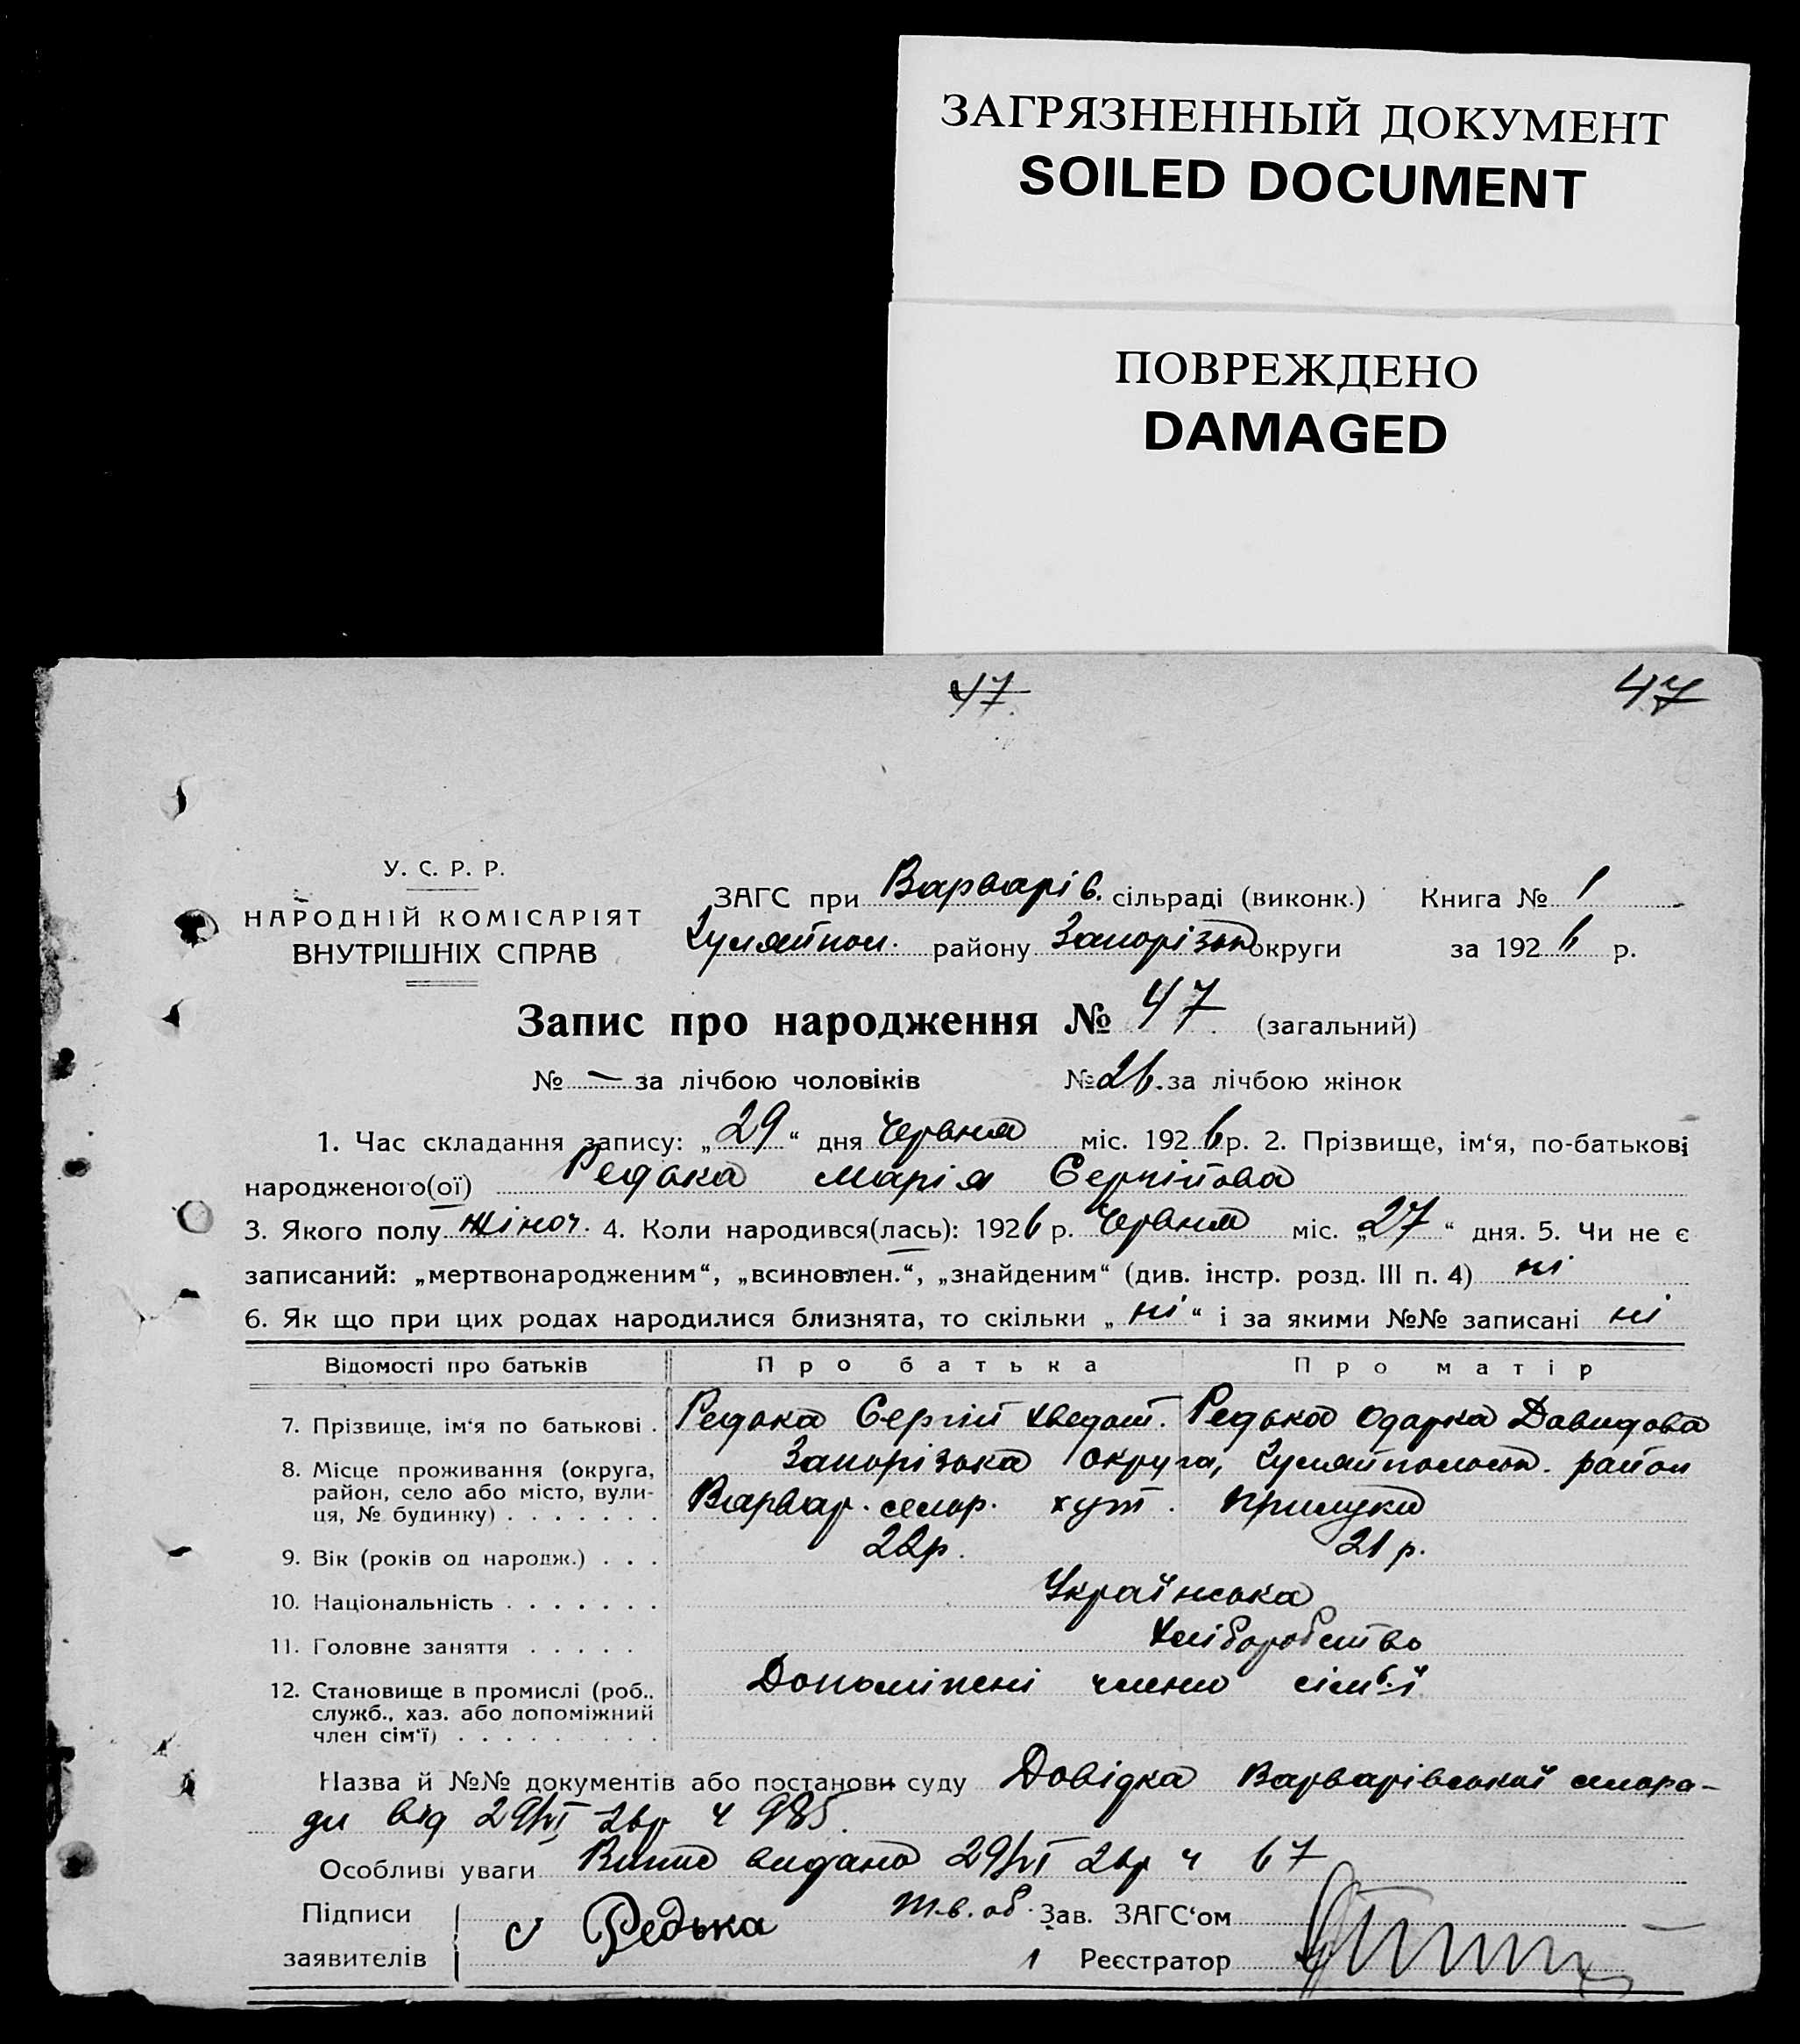 ЗАГРЯЗНЕННЫЙ ДОКУМЕНТ
SOILED DOCUMENT
ПОВРЕЖДЕНО
DAMAGED
47. 47
У. С. Р. Р.
НАРОДНІЙ КОМІСАРІЯТ
ВНУТРІШНІХ СПРАВ
ЗАГС при Варварів. сільраді (виконк.) Книга № 1
Гуляйпол. району Запорізьк округи за 1926 р.
Запис про народження № 47. (загальний)
№ — за лічбою чоловіків № 26. за лічбою жінок
1. Час складання запису: „29“ дня Червня міс. 1926 р. 2. Прізвище, ім‘я, по-батькові
народженого(ої) Редька Марія Сергійова
3. Якого полу жіноч. 4. Коли народився(лась): 1926 р. Червня міс. „27“ дня. 5. Чи не є
записаний: „мертвонародженим“, „всиновлен.“, „знайденим“ (див. інстр. розд. III п. 4) ні
6. Як що при цих родах народилися близнята, то скільки „ні“ і за якими №№ записані ні
Відомості про батьків Про батька Про матір
7. Прізвище, ім‘я по батькові . Редька Сергій Хведот. Редька Одарка Давидова
8. Місце проживання (округа, район, село або місто, вулиця, № будинку) . . . . . . . Запорізька округа, Гуляйпольськ. район
Варвар. сельр. хут. Прилуки
9. Вік (років од народж.) . . . 22р. 21 р.
10. Національність . . . . . . . Українська
11. Головне заняття . . . . . Хліборобство
12. Становище в промислі (роб.. Допоміжні члени сім‘ї
служб., хаз. або допоміжний
член сім‘ї) . . . . . . . . .
Назва й №№ документів або постанови суду Довідка Варварівської сельра-
ди від 29/VI 26р ч 985.
Особливі уваги Випис видано 29/VI 26р ч 67
Підписи Т.в.об. Зав. ЗАГС‘ом
заявителів с Редька Реєстратор